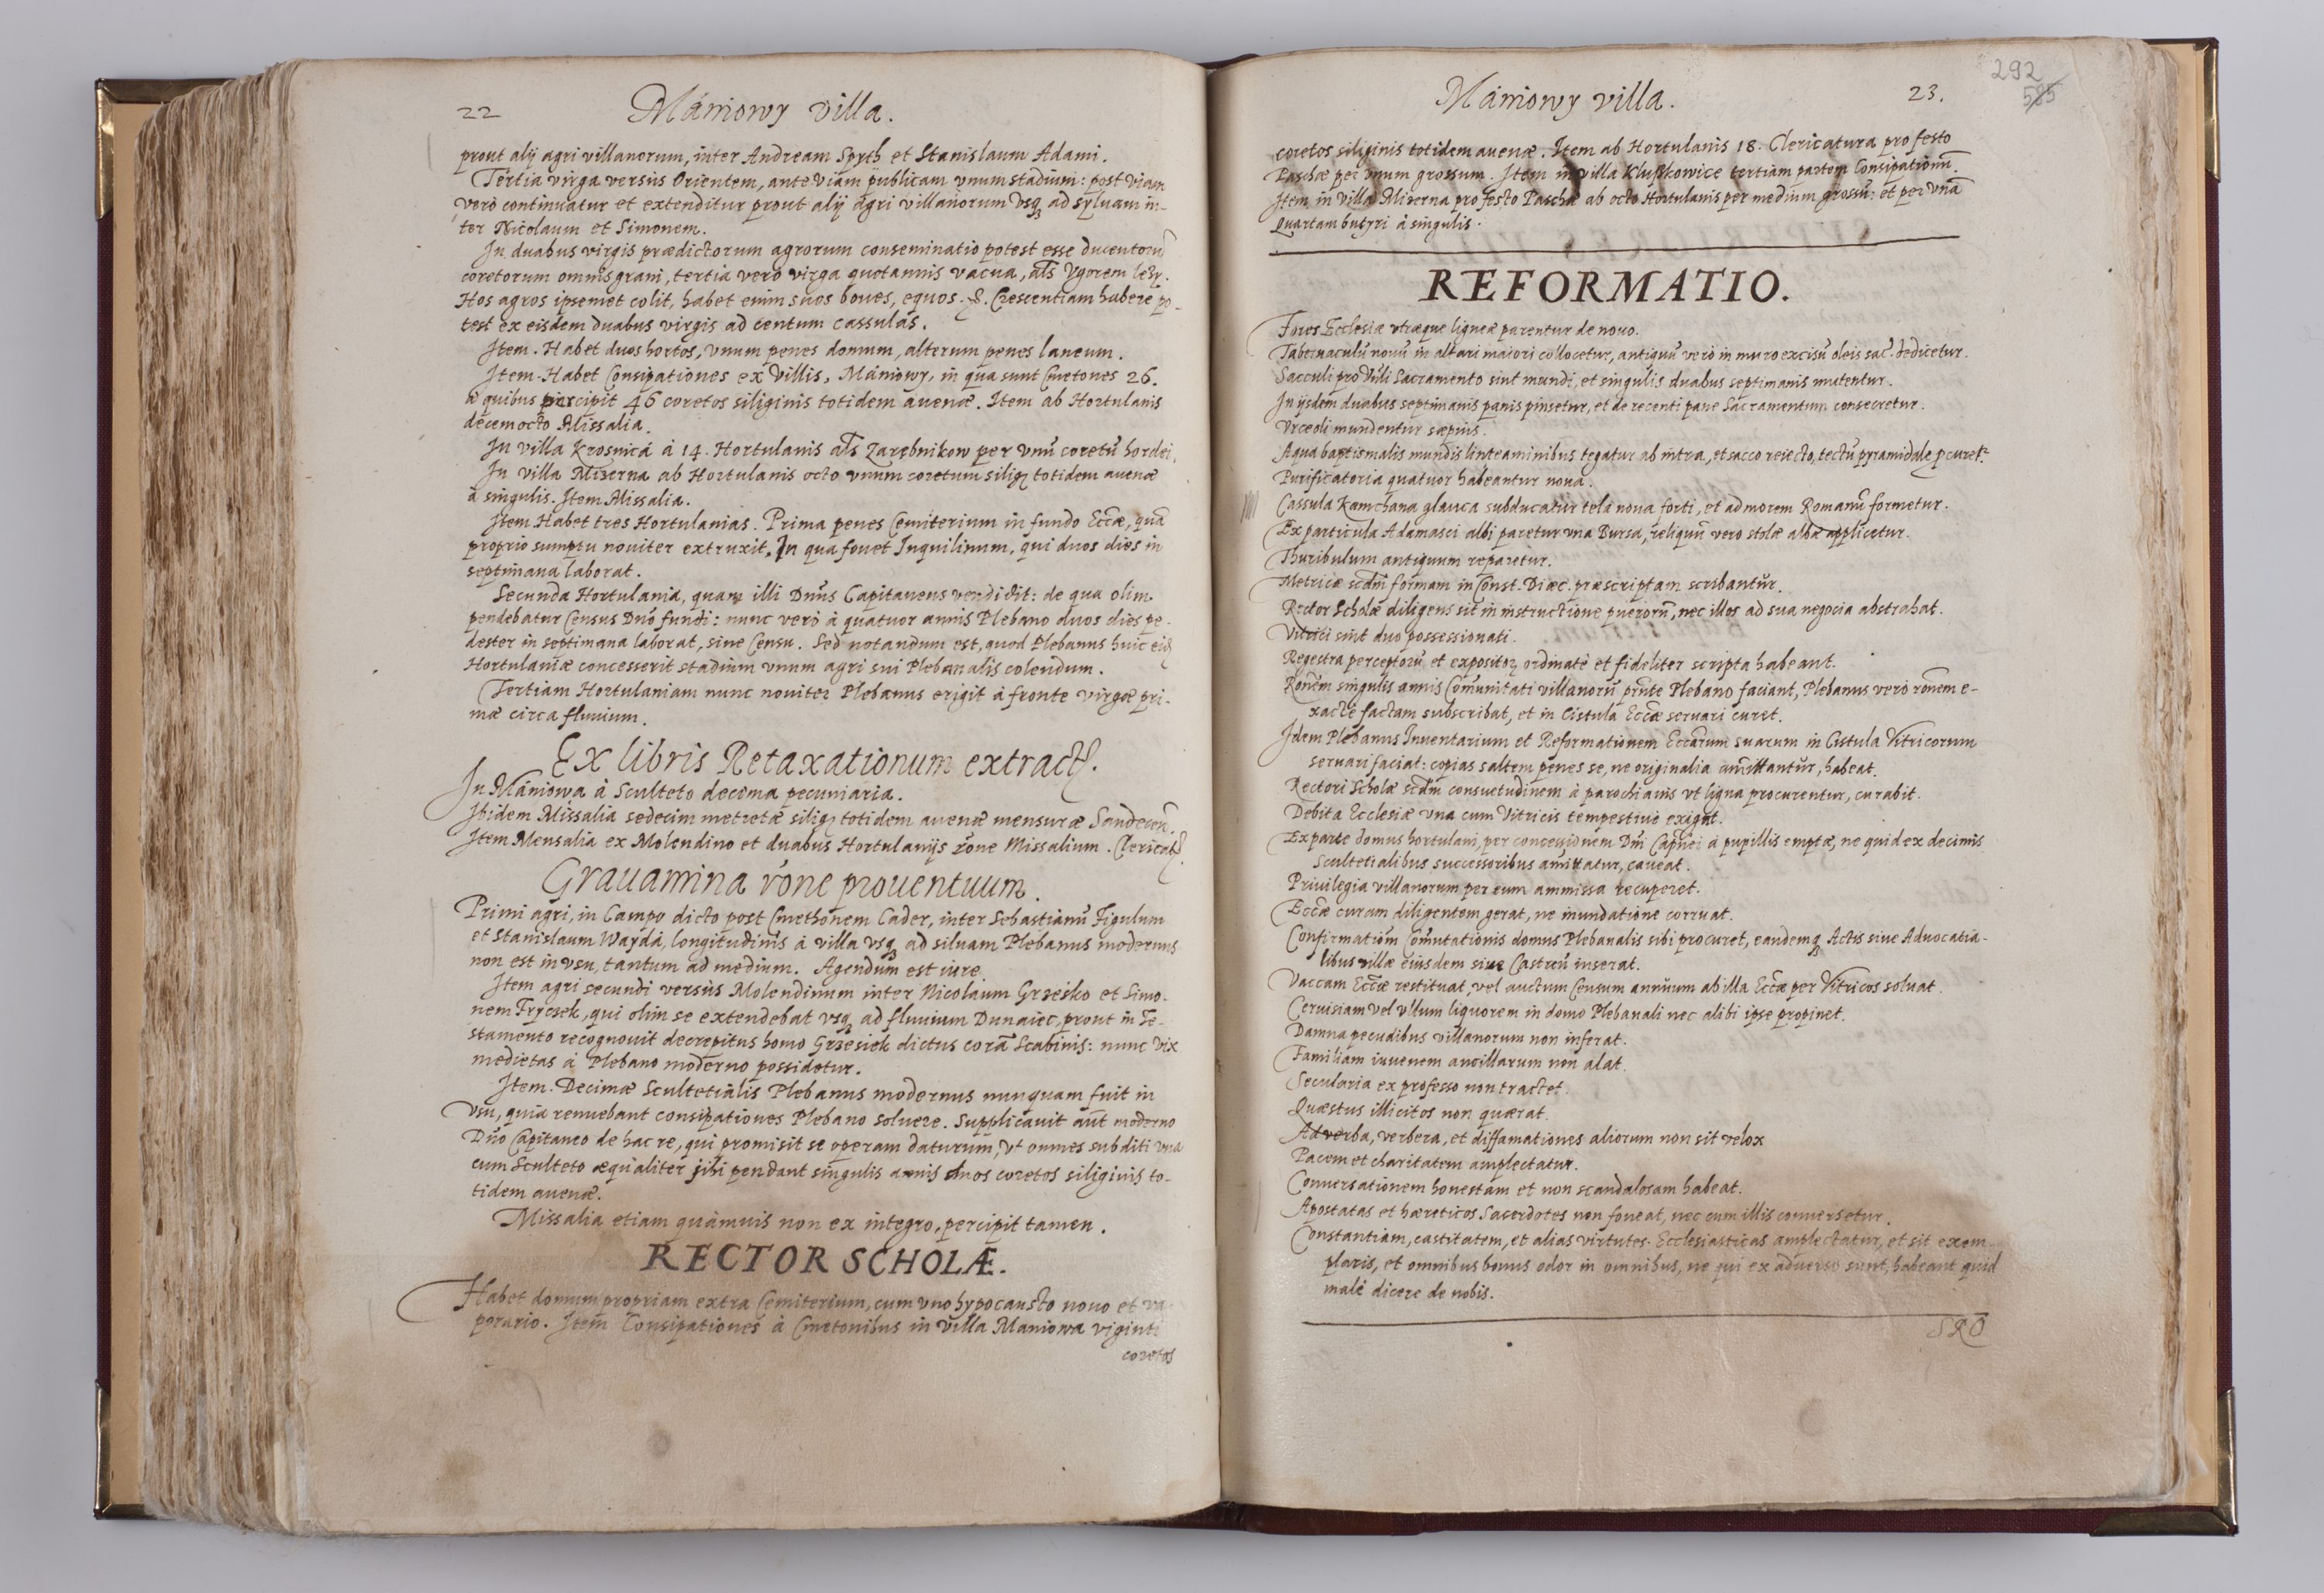 22 Maniowy villa.
prout alij agri villanorum, inter Andream Spyth et Stanislaum Adami.
Tertia virga versùs Orientem, ante viam publicam vnum stadium: post viam
verò continuatur et extenditur prout alij agri villanorum vsq ad syluam in-
ter Nicolaum et Simonem.
In duabus virgis prædictorum agrorum conseminatio potest esse ducentorũ
coretorum omnis grani, tertia verò virga quotannis vacua, als Vgorem
Hos agros ipsemet colit, habet enim suos boues, equos. &. Crescentiam habere po-
test ex eisdem duabus virgis ad centum cassulas.
Item. Habet duos hortos, vnum penes domum, alterum penes laneum.
Item. Habet Consipationes ex Villis, Maniowy, in qua sunt Cmetones 26.
à quibus percipit 46 coretos siliginis totidem auenæ. Item ab Hortulanis
decemocto Missalia.
In villa Krosnica à 14. Hortulanis als Zarębnikow per vnũ coretũ hordei.
In villa Mizerna ab Hortulanis octo vnum coretum silig totidem auenæ
à singulis. Item Missalia.
Item Habet tres Hortulanias. Prima penes Cemiterium in fundo Eccæ, quã
proprio sumptu nouiter extruxit. In qua fouet Inquilinum, qui duos dies in
septimana laborat.
Secunda Hortulania, quam illi Dnus Capitaneus vendidit: de qua olim
pendebatur Census Dño fundi: nunc verò à quatuor annis Plebano duos dies pe-
dester in septimana laborat, sine Censu. Sed notandum est, quod Plebanus huic
Hortulaniæ concesserit stadium vnum agri sui Plebanalis colendum.
Tertiam Hortulaniam nunc nouiter Plebanus erigit à fronte virgæ pri-
mæ circa fluuium.
Ex libris Retaxationum extract.
In Maniowa à Sculteto decima pecuniaria.
Ibidem Missalia sedecim metretæ silig totidem auenæ mensuræ Sandecen.
Item Mensalia ex Molendino et duabus Hortulanijs rone Missalium. Clericat.
Grauamina rone prouentuum.
Primi agri, in Campo dicto post Cmethonem Cader, inter Sebastianũ Figulum
et Stanislaum Wayda, longitudinis à villa vsq ad siluam Plebanus modernus
non est in vsu, tantum ad medium. Agendum est iure.
Item agri secundi versùs Molendinum inter Nicolaum Grzeško et Simo-
nem Fryczek, qui olim se extendebat vsq ad fluuium Dunaiec, prout in Te-
stamento recognouit decrepitus homo Grzesiek dictus corã Scabinis: nunc vix
medietas à Plebano moderno possidetur.
Item. Decimæ Scultetialis Plebanus modernus nunquam fuit in
vsu, quia renuebant consipationes Plebano soluere. Supplicauit aũt moderno
Dño Capitaneo de hac re, qui promisit se operam daturum, vt omnes subditi vna
cum Sculteto æqualiter sibi pendant singulis annis duos coretos siliginis to-
tidem auenæ.
Missalia etiam quàmuis non ex integro, percipit tamen.
RECTOR SCHOLÆ.
Habet domum propriam extra Cemiterium, cum vno hypocausto nouo et va-
porario. Item Consipationes à Cmetonibus in villa Maniowa viginti
coretos
Maniowy villa. 23.
292
585
coretos siliginis totidem auenæ. Item ab Hortulanis 18. Clericatura pro festo
Paschæ per vnum grossum. Item in villa Kluszkowice tertiam partem Consipationũ.
Item in villa Mizerna pro festo Paschæ ab octo Hortulanis per medium grossũ: et per vnã
Quartam butyri à singulis.
REFORMATIO.
Fores Ecclesiæ vtræque ligneæ parentur de nouo.
Tabernaculũ nouũ in altari maiori collocetur, antiquũ verò in muro excisũ oleis sac. dedicetur.
Sacculi pro Vñli Sacramento sint mundi, et singulis duabus septimanis mutentur.
In ijsdem duabus septimanis panis pinsetur, et de recenti pane Sacramentum consecretur.
Vrceoli mundentur sæpius.
Aqua baptismalis mundis linteaminibus tegatur ab intra, et sacco resecto, tectũ pyramidale pcuret.
Purificatoria quatuor habeantur noua.
Cassula Kamchana glauca subducatur tela noua forti, et ad morem Romanũ formetur.
Ex particula Adamasci albi paretur vna Bursa, reliquũ vero stolæ albæ applicetur.
Thuribulum antiquum reparetur.
Metricæ scdm formam in Const. Diæc. præscriptam scribantur.
Rector Scholæ diligens sit in instructione puerorũ, nec illos ad sua negocia abstrahat.
Vitrici sint duo possessionati.
Regestra perceptorũ et expositoꝝ ordinatè et fideliter scripta habeant.
Ronem singulis annis Comunitati villanorũ pnte Plebano faciant, Plebanus verò ronem e-
xactè factam subscribat, et in Cistula Eccæ seruari curet.
Idem Plebanus Inuentarium et Reformationem Eccarum suarum in Cistula Vitricorum
seruari faciat: copias saltem penes se, ne originalia amittantur, habeat.
Rectori Scholæ scdm consuetudinem à parochianis vt ligna procurentur, curabit.
Debita Ecclesiæ vna cum Vitricis tempestiuè exigat.
Ex parte domus hortulani, per concessionem Dñi Capnei à pupillis emptæ, ne quid ex decimis
Scultetialibus successoribus amittatur, caueat.
Priuilegia villanorum per eum ammissa recuperet.
Eccæ curam diligentem gerat, ne inundatione corruat.
Confirmationem Comutationis domus Plebanalis sibi procuret, eandemq Actis siue Aduocatia-
libus villæ eiusdem siue Castren inserat.
Vaccam Eccæ restituat, vel auctum Censum annuum ab illa Eccæ per Vitricos soluat.
Ceruisiam vel vllum liquorem in domo Plebanali nec alibi ipse propinet.
Damna pecudibus villanorum non inferat.
Familiam iuuenem ancillarum non alat.
Secularia ex professo non tractet.
Quæstus illicitos non quærat.
Ad verba, verbera, et diffamationes aliorum non sit velox
Pacem et charitatem amplectatur.
Conuersationem honestam et non scandalosam habeat.
Apostatas et hæreticos Sacerdotes non foueat, nec cum illis conuersetur.
Constantiam, castitatem, et alias virtutes Ecclesiasticas amplectatur, et sit exem-
plaris, et omnibus bonus odor in omnibus, ne qui ex aduerso sunt, habeant quid
malè dicere de nobis.